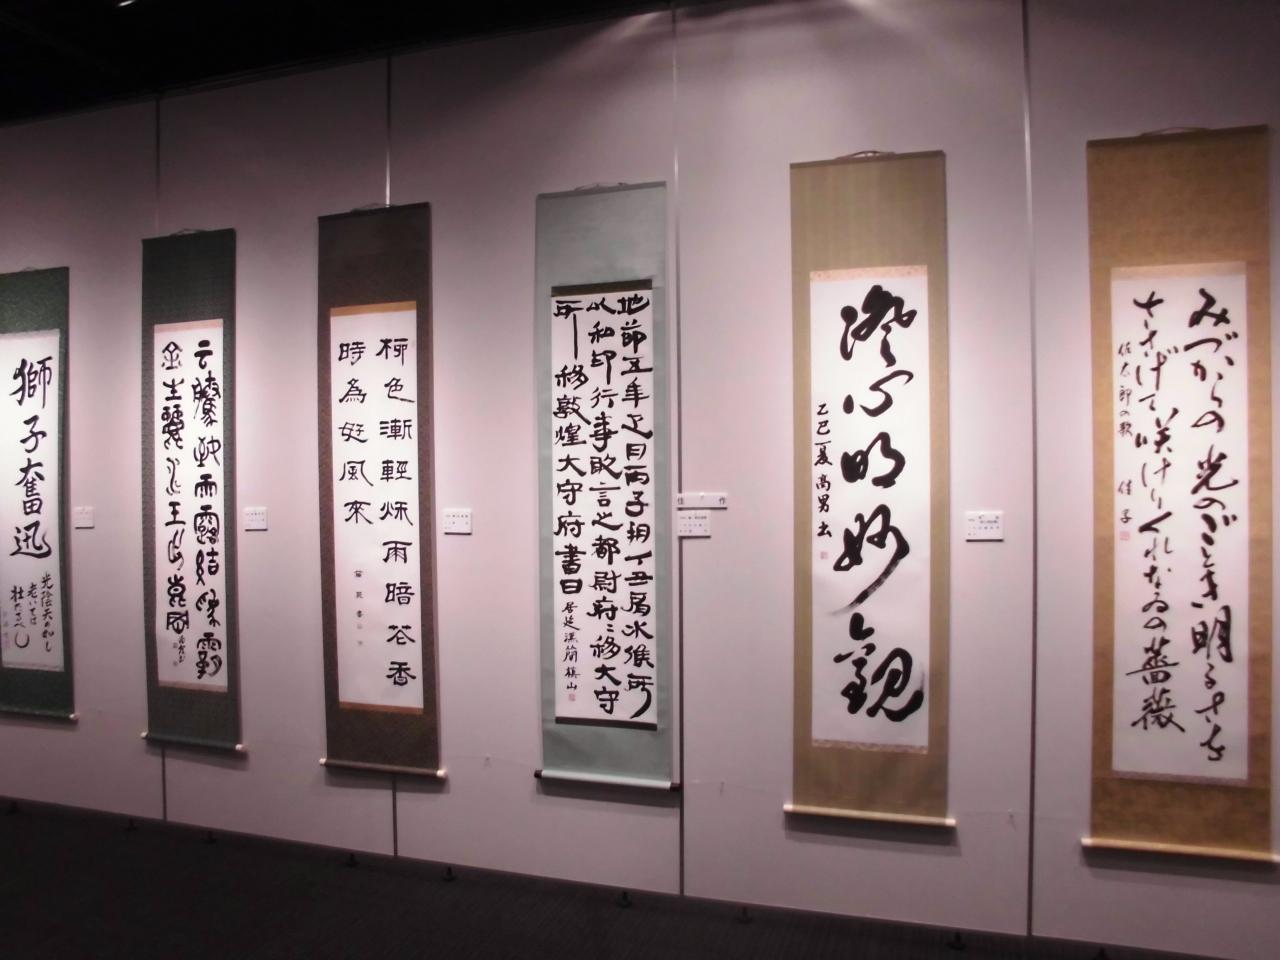 獅子奮迅
光陰矢の如し
老いては
云騰致雨露結為霜
金生麗水玉出崑岡
柳色漸輕煉雨暗花香
時為好風來
地節五年正月丙子朔丁丑肩水候房
以私印行事敢言之都尉府二移大守
所一移敦煌大守府書曰
居延漢簡
澄心明妙観
乙巳夏高男书
佳作
みづからの光のごとき明るさを
ささげて咲けりくれなゐの薔薇
佐太郎の歌 佳子